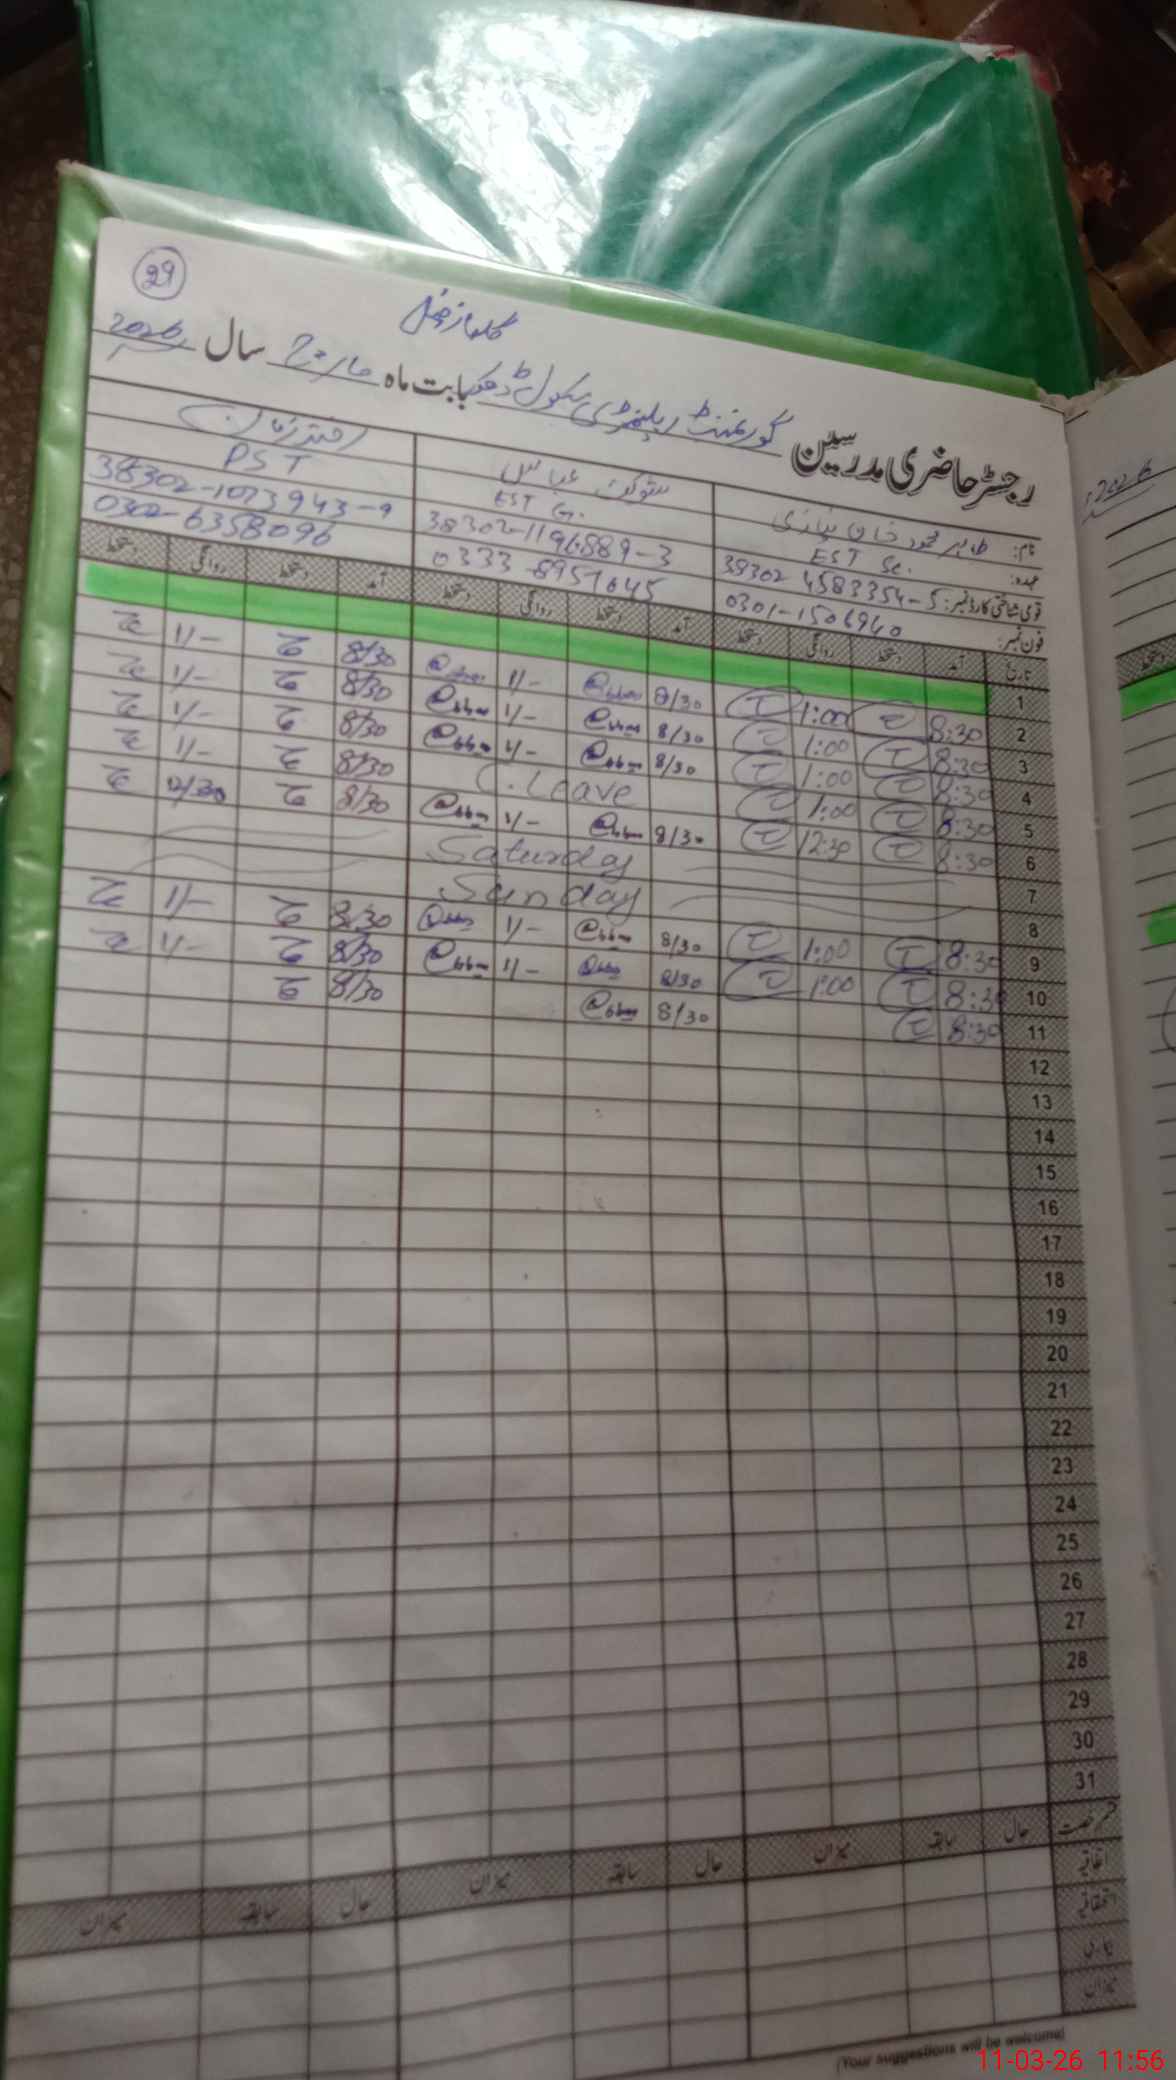 29
گورنمنٹ ایلیمنٹری سکول ڈھوک بابت ماہ مارچ سال 2026
رجسٹر حاضری مدرسین
2026
نام: طاہر محمود خان نیازی شوکت عباس اختر زمان
عہدہ: EST Sc. EST G. PST
قومی شناختی کارڈ نمبر: 38302 4583354-5 38302-1196889-3 38302-1073943-9
فون نمبر: 0301-1506940 0333 8951645 0302-6358096
تاریخ آمد دستخط روانگی دستخط آمد دستخط روانگی دستخط آمد دستخط روانگی دستخط
1
2 8:30 1:00 8/30 1/- 8/30 1/-
3 8:30 1:00 8/30 1/- 8/30 1/-
4 8:30 1:00 8/30 1/- 8/30 1/-
5 8:30 1:00 C. Leave 8/30 1/-
6 8:30 12:30 8/30 1/- 8/30 12/30
7 Saturday
8 Sunday
9 8:30 1:00 8/30 1/- 8/30 1/-
10 8:30 1:00 8/30 1/- 8/30 1/-
11 8:30 8/30 8/30
12
13
14
15
16
17
18
19
20
21
22
23
24
25
26
27
28
29
30
31
قسم رخصت حال سابقہ میزان حال سابقہ میزان حال سابقہ میزان
اتفاقیہ
استحقاقیہ
بیماری
میزان
(Your suggestions will be welcome)
11-03-26 11:56